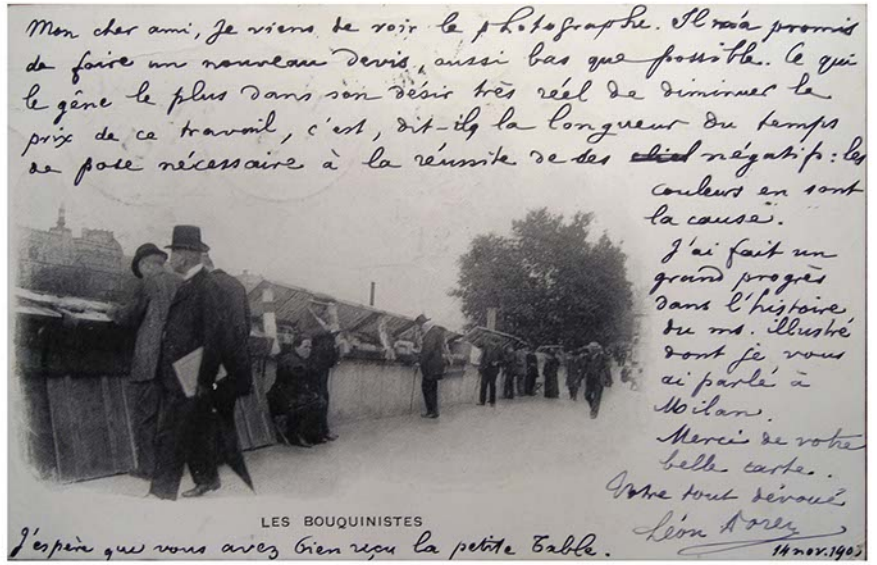 Mon cher ami, Je viens de voir le photographe. Il m'a promis
de faire un nouveau devis, aussi bas que possible. Ce qui
le gêne le plus dans son désir très réel de diminuer le
prix de ce travail, c'est, dit-il, la longueur du temps
de pose nécessaire à la réussite de ses négatifs : les
couleurs en sont
la cause.
J'ai fait un
grand progrès
dans l'histoire
du ms. illustré
dont je vous
ai parlé à
Milan.
Merci de votre
belle carte.
Votre tout dévoué
Léon Dorez
14 nov.
LES BOUQUINISTES
J'espère que vous avez bien reçu la petite Table.